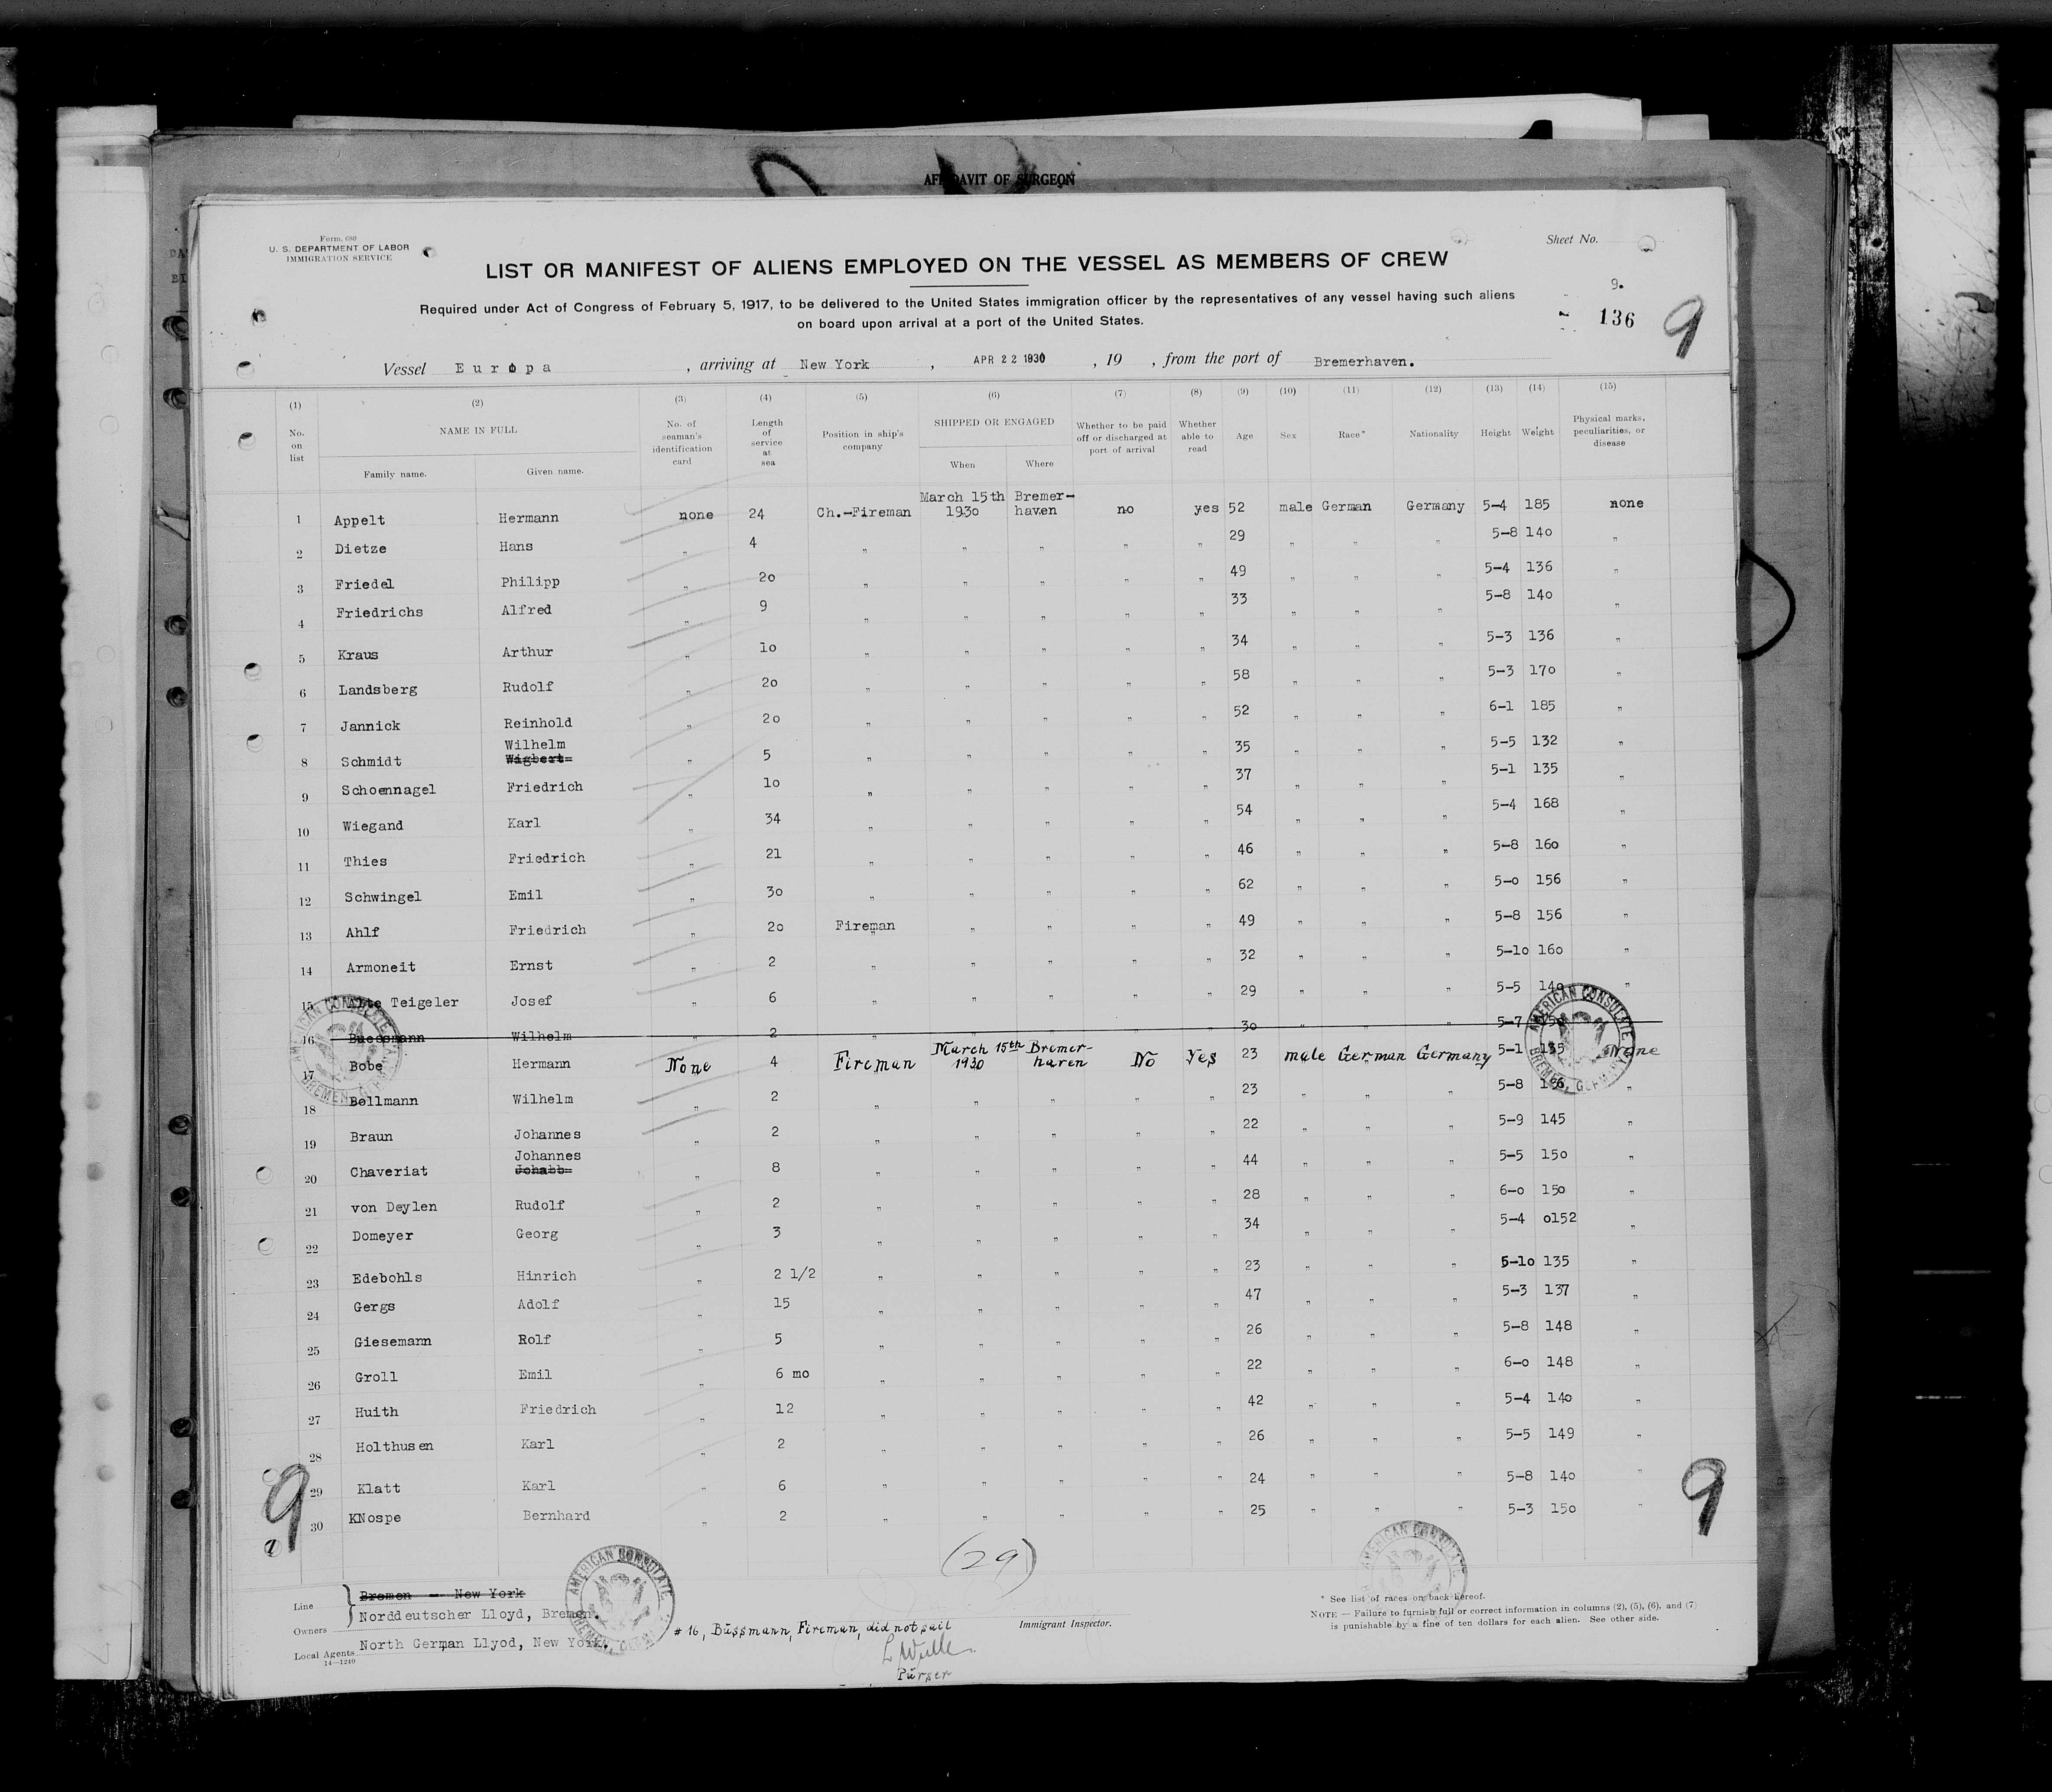 AFFIDAVIT OF SURGEON
Form. 680
U. S. DEPARTMENT OF LABOR
IMMIGRATION SERVICE
Sheet No.
LIST OR MANIFEST OF ALIENS EMPLOYED ON THE VESSEL AS MEMBERS OF CREW
9.
Required under Act of Congress of February 5, 1917, to be delivered to the United States immigration officer by the representatives of any vessel having such aliens
on board upon arrival at a port of the United States.
136 9
Vessel Europa , arriving at New York , APR 22 1930 , 19 , from the port of Bremerhaven.
(1) (2) (3) (4) (5) (6) (7) (8) (9) (10) (11) (12) (13) (14) (15)
No. on list NAME IN FULL Family name. Given name. No. of seaman's identification card Length of service at sea Position in ship's company SHIPPED OR ENGAGED When Where Whether to be paid off or discharged at port of arrival Whether able to read Age Sex Race* Nationality Height Weight Physical marks, peculiarities, or disease
1 Appelt Hermann none 24 Ch.-Fireman March 15th 1930 Bremer-haven no yes 52 male German Germany 5-4 185 none
2 Dietze Hans " 4 " " " " " 29 " " " 5-8 140 "
3 Friedel Philipp " 20 " " " " " 49 " " " 5-4 136 "
4 Friedrichs Alfred " 9 " " " " " 33 " " " 5-8 140 "
5 Kraus Arthur " 10 " " " " " 34 " " " 5-3 136 "
6 Landsberg Rudolf " 20 " " " " " 58 " " " 5-3 170 "
7 Jannick Reinhold " 20 " " " " " 52 " " " 6-1 185 "
8 Schmidt Wilhelm Wigbert " 5 " " " " " 35 " " " 5-5 132 "
9 Schoennagel Friedrich " 10 " " " " " 37 " " " 5-1 135 "
10 Wiegand Karl " 34 " " " " " 54 " " " 5-4 168 "
11 Thies Friedrich " 21 " " " " " 46 " " " 5-8 160 "
12 Schwingel Emil " 30 " " " " " 62 " " " 5-0 156 "
13 Ahlf Friedrich " 20 Fireman " " " " 49 " " " 5-8 156 "
14 Armoneit Ernst " 2 " " " " " 32 " " " 5-10 160 "
15 Teigeler Josef " 6 " " " " " 29 " " " 5-5 140 "
16 Buessmann Wilhelm " 2 " " " " " 30 " " " 5-7
17 Bobe Hermann None 4 Fireman March 15th 1930 Bremer-haven No Yes 23 male German Germany 5-1 135 None
18 Bollmann Wilhelm " 2 " " " " " 23 " " " 5-8 "
19 Braun Johannes " 2 " " " " " 22 " " " 5-9 145 "
20 Chaveriat Johannes Johabb " 8 " " " " " 44 " " " 5-5 150 "
21 von Deylen Rudolf " 2 " " " " " 28 " " " 6-0 150 "
22 Domeyer Georg " 3 " " " " " 34 " " " 5-4 0152 "
23 Edebohls Hinrich " 2 1/2 " " " " " 23 " " " 5-10 135 "
24 Gergs Adolf " 15 " " " " " 47 " " " 5-3 137 "
25 Giesemann Rolf " 5 " " " " " 26 " " " 5-8 148 "
26 Groll Emil " 6 mo " " " " " 22 " " " 6-0 148 "
27 Huith Friedrich " 12 " " " " " 42 " " " 5-4 140 "
28 Holthusen Karl " 2 " " " " " 26 " " " 5-5 149 "
29 Klatt Karl " 6 " " " " " 24 " " " 5-8 140 "
30 KNospe Bernhard " 2 " " " " " 25 " " " 5-3 150 "
9 9
(29)
AMERICAN CONSULATE BREMEN, GERMANY
AMERICAN CONSULATE BREMEN, GERMANY
AMERICAN CONSULATE
AMERICAN CONSULATE
Line Bremen - New York
Owners Norddeutscher Lloyd, Bremen.
Local Agents North German Llyod, New York.
14-1240
# 16, Büssmann, Fireman, did not sail
Purser
Immigrant Inspector.
* See list of races on back hereof.
NOTE — Failure to furnish full or correct information in columns (2), (5), (6), and (7)
is punishable by a fine of ten dollars for each alien. See other side.